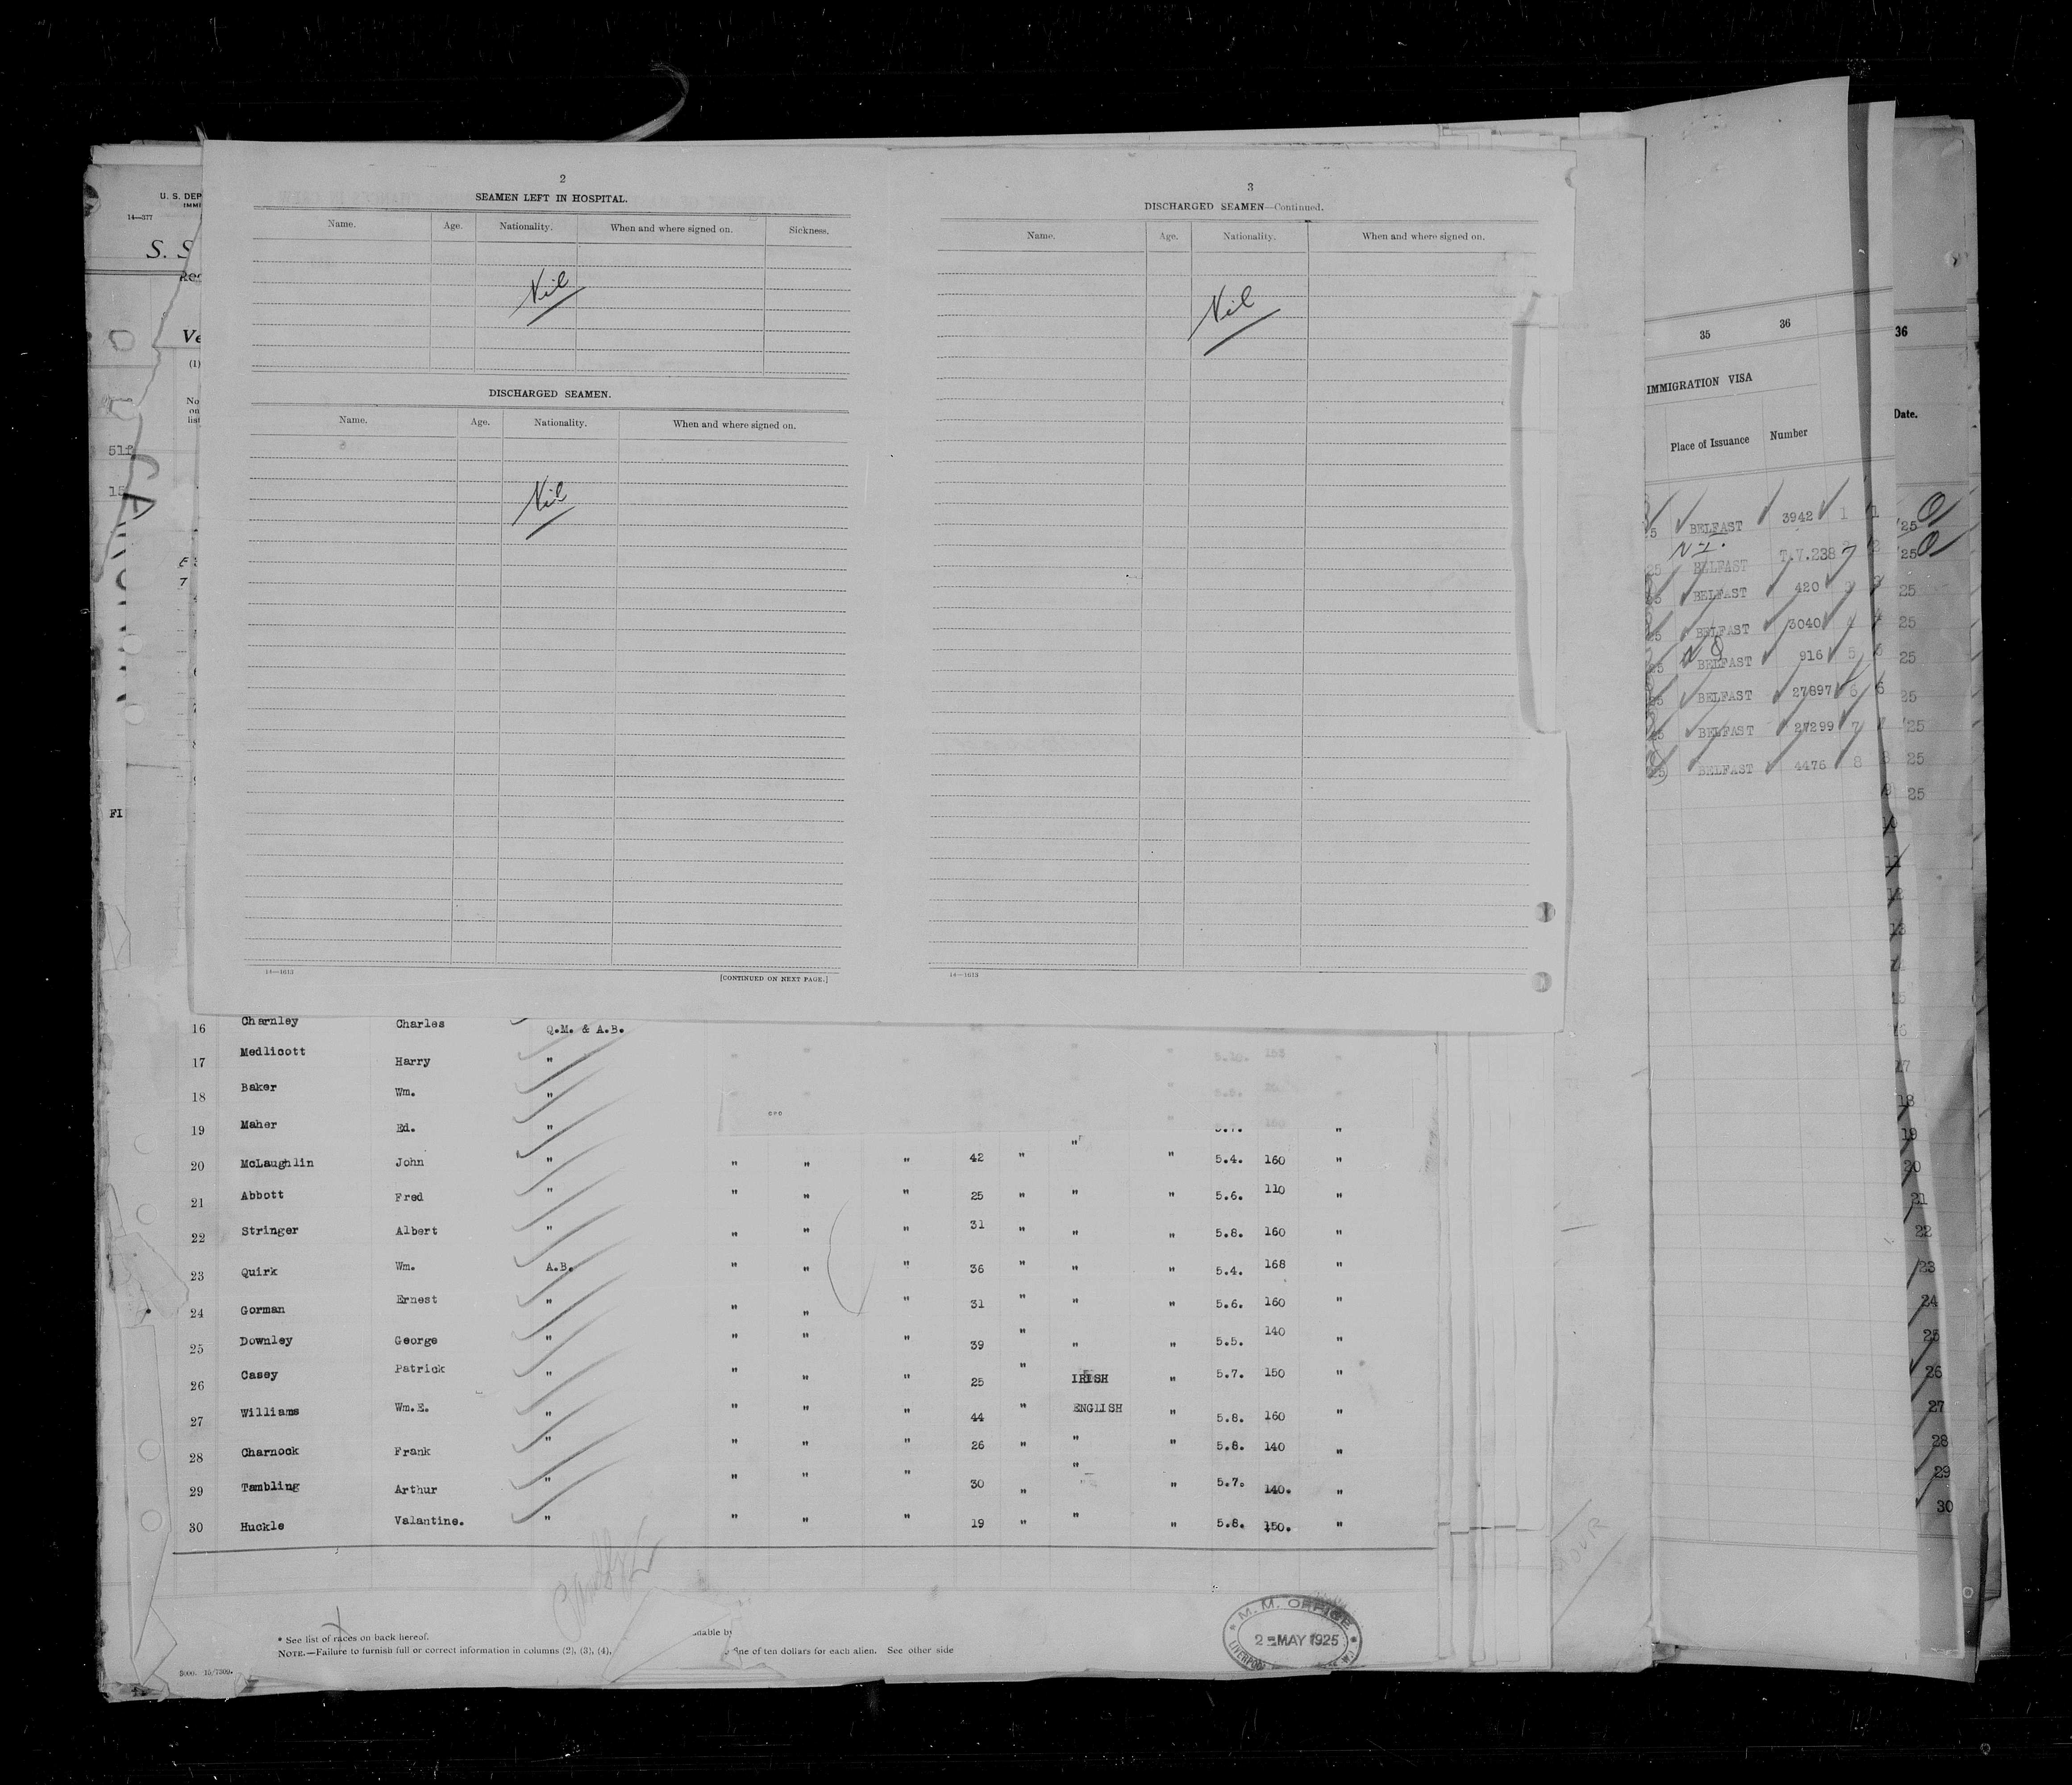 2
SEAMEN LEFT IN HOSPITAL.
Name. Age. Nationality. When and where signed on. Sickness.
Nil
DISCHARGED SEAMEN.
Name. Age. Nationality. When and where signed on.
Nil
14—1613 [CONTINUED ON NEXT PAGE.]
3
DISCHARGED SEAMEN—Continued.
Name. Age. Nationality. When and where signed on.
Nil
14—1613
U. S. DEP
IMMI
14—377
S. S
Ve
(1)
No
on
list
FI
16 Charnley Charles Q.M. & A.B.
17 Medlicott Harry "
18 Baker Wm. "
19 Maher Ed. " "
20 McLaughlin John " " " " 42 " " " 5.4. 160 "
21 Abbott Fred " " " " 25 " " " 5.6. 110 "
22 Stringer Albert " " " " 31 " " " 5.8. 160 "
23 Quirk Wm. A.B. " " " 36 " " " 5.4. 168 "
24 Gorman Ernest " " " " 31 " " " 5.6. 160 "
25 Downley George " " " " 39 " " " 5.5. 140 "
26 Casey Patrick " " " " 25 " IRISH " 5.7. 150 "
27 Williams Wm.E. " " " " 44 " ENGLISH " 5.8. 160 "
28 Charnock Frank " " " " 26 " " " 5.8. 140 "
29 Tambling Arthur " " " " 30 " " " 5.7. 140. "
30 Huckle Valantine. " " " " 19 " " " 5.8. 150. "
* See list of races on back hereof.
NOTE.—Failure to furnish full or correct information in columns (2), (3), (4),
fine of ten dollars for each alien. See other side
M. M. OFFICE
2 MAY 1925
LIVERPOOL
35 36
IMMIGRATION VISA
Place of Issuance Number
BELFAST 3942 1
N-I.
BELFAST T.V.238
BELFAST 420
BELFAST 3040 4
BELFAST 916 5
BELFAST 27897 6
BELFAST 27299 7
BELFAST 4476 8
36
Date.
'25
'25
25
25
25
25
'25
25
25
17
18
19
20
21
22
23
24
25
26
27
28
29
30